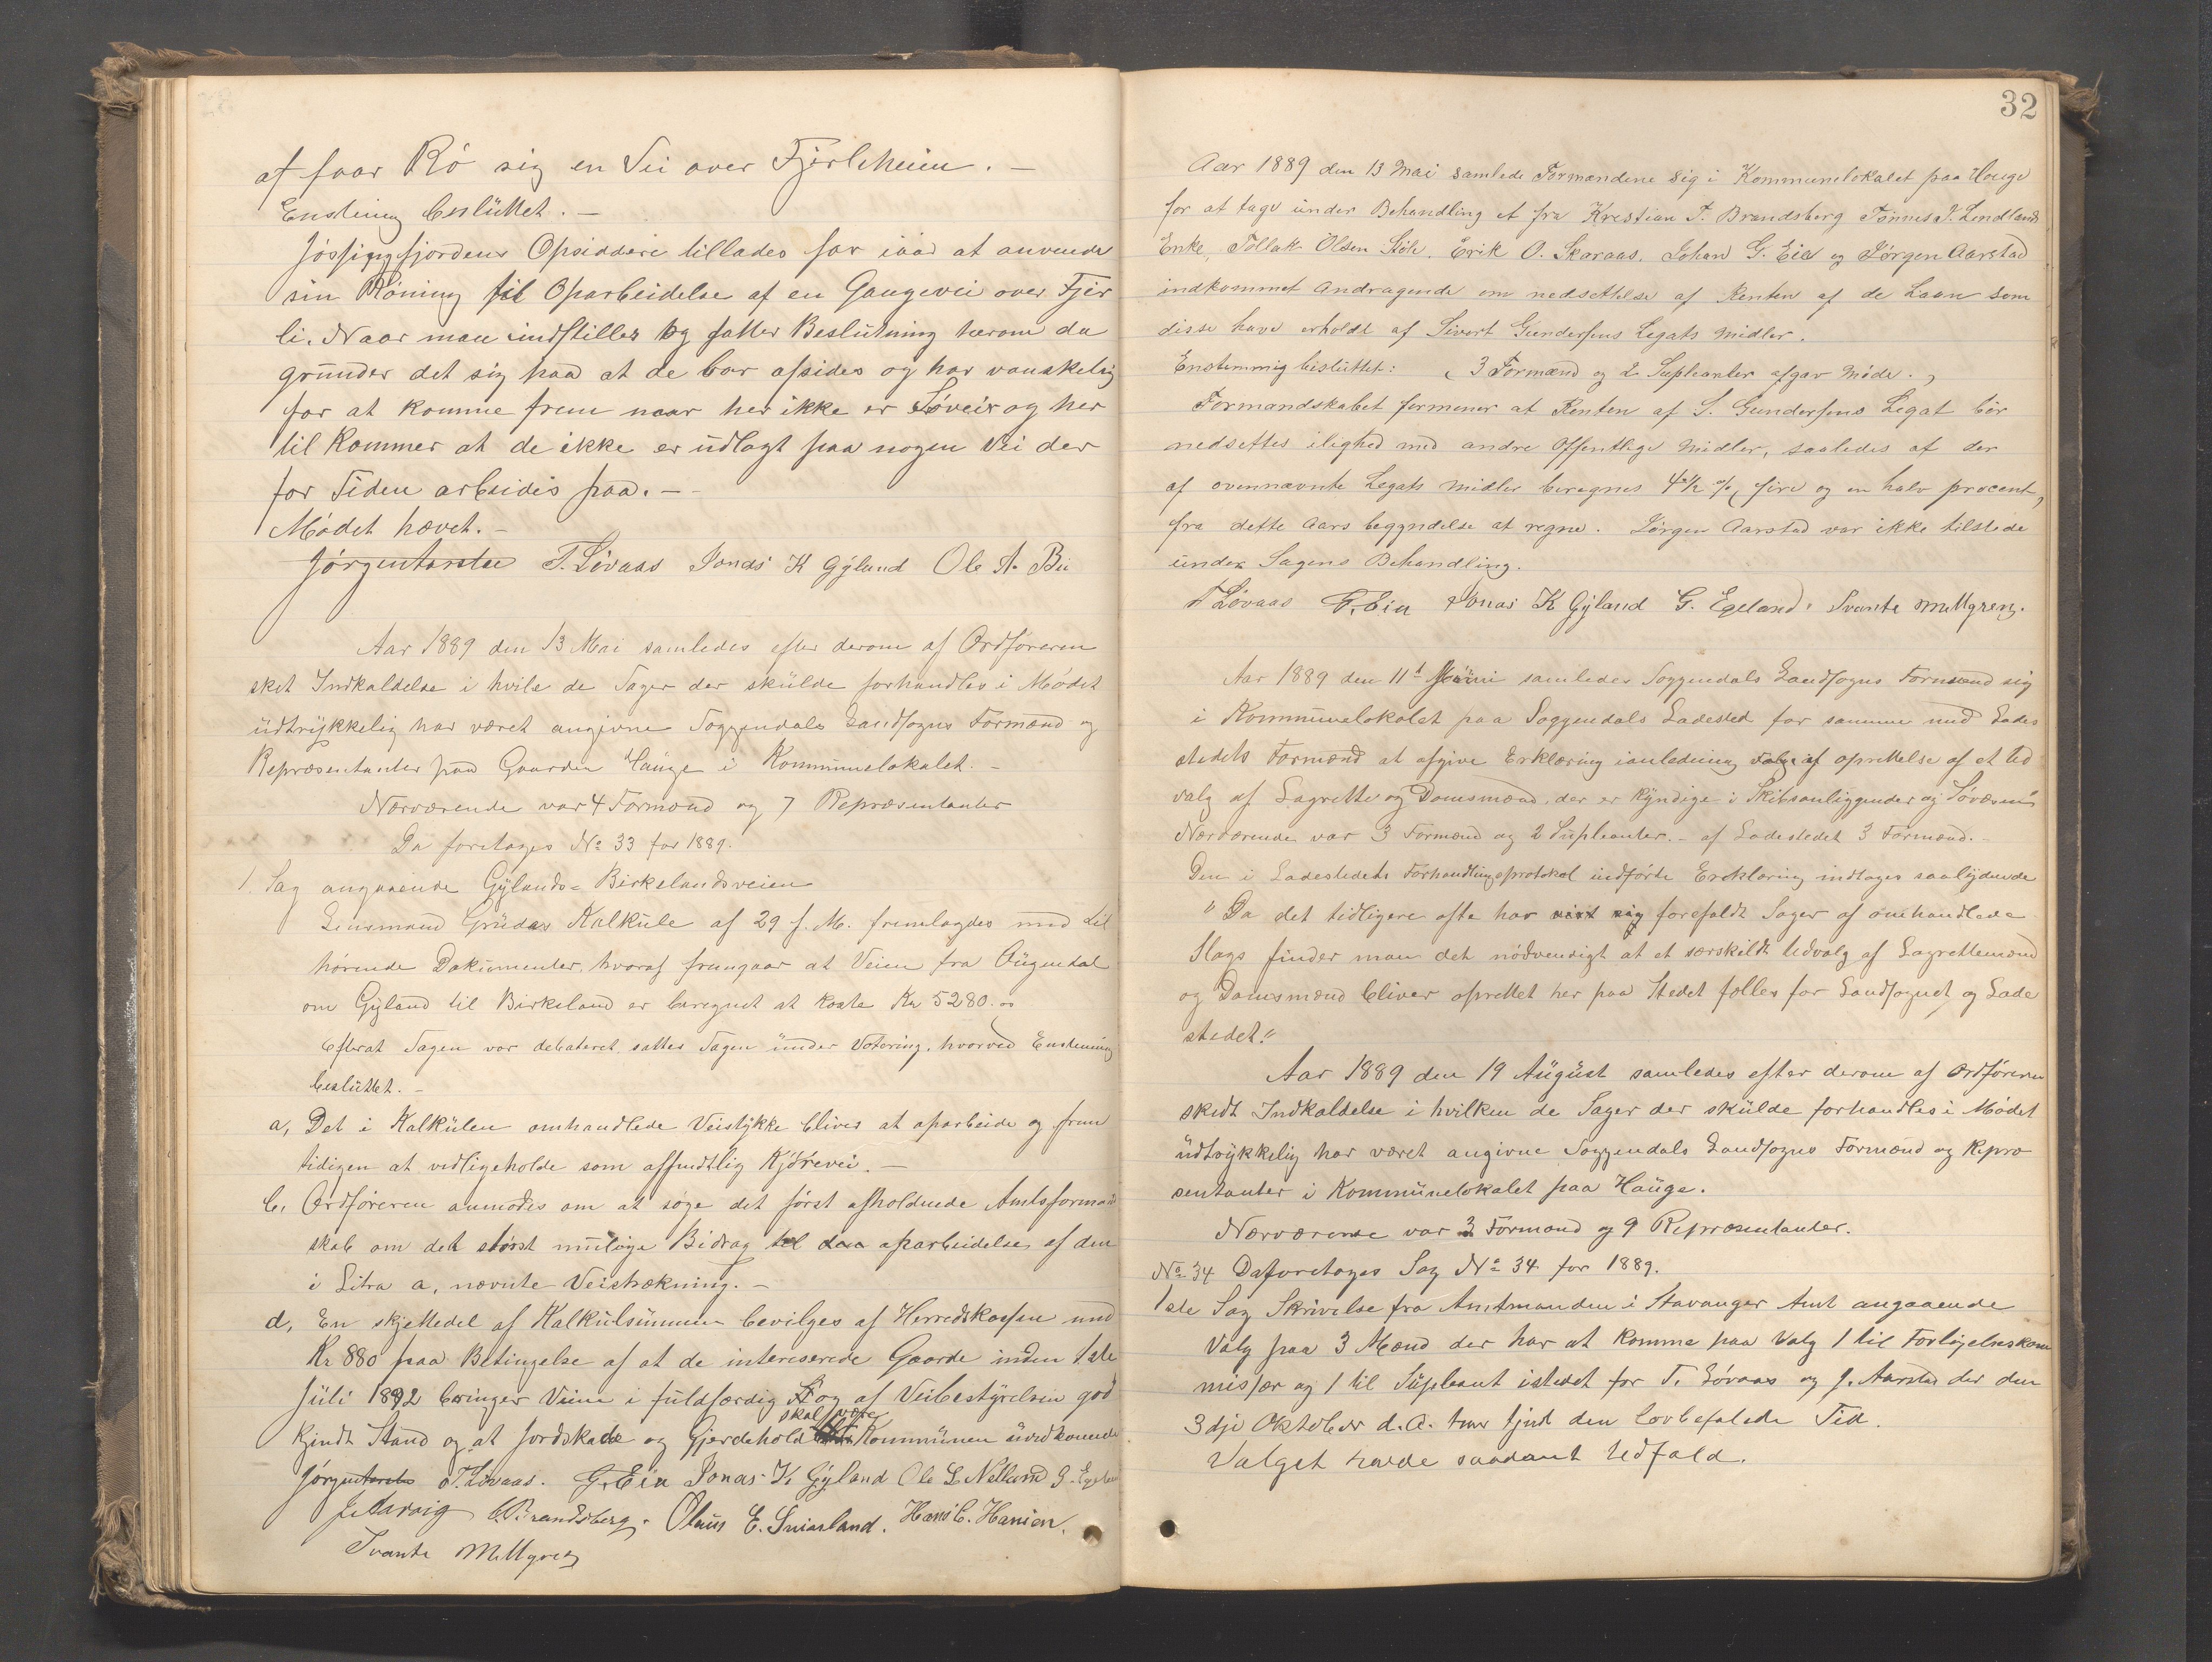 at faar Rö sig en Vei over Fjerleheien. -
Enstemig beslüttet. -
Jössingfjordens Opsiddere tillades for iaar at anvende
sin Röning til Oparbeidelse af en Gangevei over Fjer
li. Naar man indstiller og fatter Beslütning herom da
grunder det sig paa at de bor afsides og har vanskelig
for at komme frem naar her ikke er Söveir og her
til kommer at de ikke er üdlagt paa nogen Vei der
for Tiden arbeides paa. -
Mödet hævet. -
Jörgen Aarstad T. Lövaas Jonas K Gÿland Ole A. Bu
Aar 1889 den 13 Mai samledes efter derom af Ordföreren
sket Indkaldelse i hvilke de Sager der skülde forhandles i Mödet
üdtrÿkkelig har været angivne Soggendals Landsogns Formænd og
Repræsentanter paa Gaarden Haüge i Kommünelokalet. -
Nærværende var 4 Formænd og 7 Repræsentanter
Da foretages No 33 for 1889.
1. Sag angaaende Gÿlands-Birkelandsveien
Lensmand Grüdes Kalküle af 29 f. M. fremlagdes med til
hørende Dokümenter, hvoraf fremgaar at Veien fra Aügendal
om Gÿland til Birkeland er beregnet at koste Kr 5280.00
Efterat Sagen var debateret, sattes Sagen ünder Votering, hvorved Enstemig
beslüttet. -
a, Det i Kalkülen omhandlede Veistÿkke blives at oparbeide og frem
tidigen at vedligeholde som offendtlig Kjörevei. -
b, Ordföreren anmodes om at söge det först afholdnede Amtsformand
skab om det störst mülige Bidrag til oparbeidelse af den
i Litra a, nævnte Veistrækning. -
d, En skjettedel af Kalkülsümmen bevilges af Herredskassen med
Kr 880 paa Betingelse af at de intereserede Gaarde inden 1ste
Jüli 1892 bringer Veien i füldfærdig og af Veibestÿrelsen god
skal være
kjendt Stand og at Jordskade og Gjerdehold Kommünen üvedkomende
Jörgen Aarstad T. Lövaas. G. Eia Jonas K. Gÿland Ole L Nesland G. Egeland
C. Brandsberg. Olaus E. Hans C. Hansen.
Svante Mellgren
32
Aar 1889 den 13 Mai samlede Formændene sig i Kommunelokalet paa Houge
for at tage ünder Behandling et fra Krestian T. Brandsberg Tönnes T. Lendlands
Enke, Tollak Olsen Stöle, Erik O. Skaraas, Johan G. Eia og Jörgen Aarstad
indkommet Andragende om nedsettelse af Renten af de Laan som
disse have erholdt af Sivert Gundersens Legats midler.
Enstemmig beslüttet: ( 3 Formænd og 2 Supleanter afgav Möde. )
Formandskabet formener at Renten af S. Gundersens Legat bör
nedsettes ilighed med andre Offentlige Midler, saaledes at der
af ovennævnte Legats midler beregnes 4 1/2 % ( fire og en halv procent )
fra dette Aars begyndelse at regne. Jörgen Aarstad var ikke tilstede
ünder Sagens Behandling.
T Lövaas G. Eia Jonas K Gÿland G. Egeland. Svante Mellgren.
Aar 1889 den 11te Jüni samledes Soggendals Landsogns Formænd sig
i Kommünelokalet paa Soggendals Ladested for samme med Lade
stedets Formænd at afgive Erklæring ianledning af oprettelse af et Ud
valg af Lagrette og Domsmænd, der er kÿndige i Skibsanliggender og Sövæsen
Nærværende var 3 Formænd og 2 Süpleanter. - af Ladestedet 3 Formænd. -
Den i Ladestedets Forhandlingsprotokol indförte Ercklæring indtages saalÿdende
" Da det tidligere ofte har forefaldt Sager af omhandlede
Slags finder man det nödvendigt at et særskildt Udvalg af Lagrettemænd
og Domsmænd bliver oprettet her paa Stedet fælles for Landsognet og Lade
stedet."
Aar 1889 den 19 Aügüst samledes efter derom af Ordföreren
skedt Indkaldelse i hvilken de Sager der skülde forhandles i Mödet
üdtrÿkkelig har været angivne Soggendals Landsogns Formænd og Repræ
sentanter i Kommünelokalet paa Haüge.
Nærværende var 3 Formænd og 9 Repræsentanter.
No 34 Daforetoges Sag No 34 for 1889.
1ste Sag Skrivelse fra Amtmanden i Stavanger Amt angaaende
Valg paa 3 Mænd der har at komme paa Valg 1 til Forligelseskom
missær og 1 til Süpleant istedet for T. Lövaas og J. Aarstad der den
3dje Oktober d. A. har tjent den lovbefalede Tid.
Valget havde saadant Udfald.